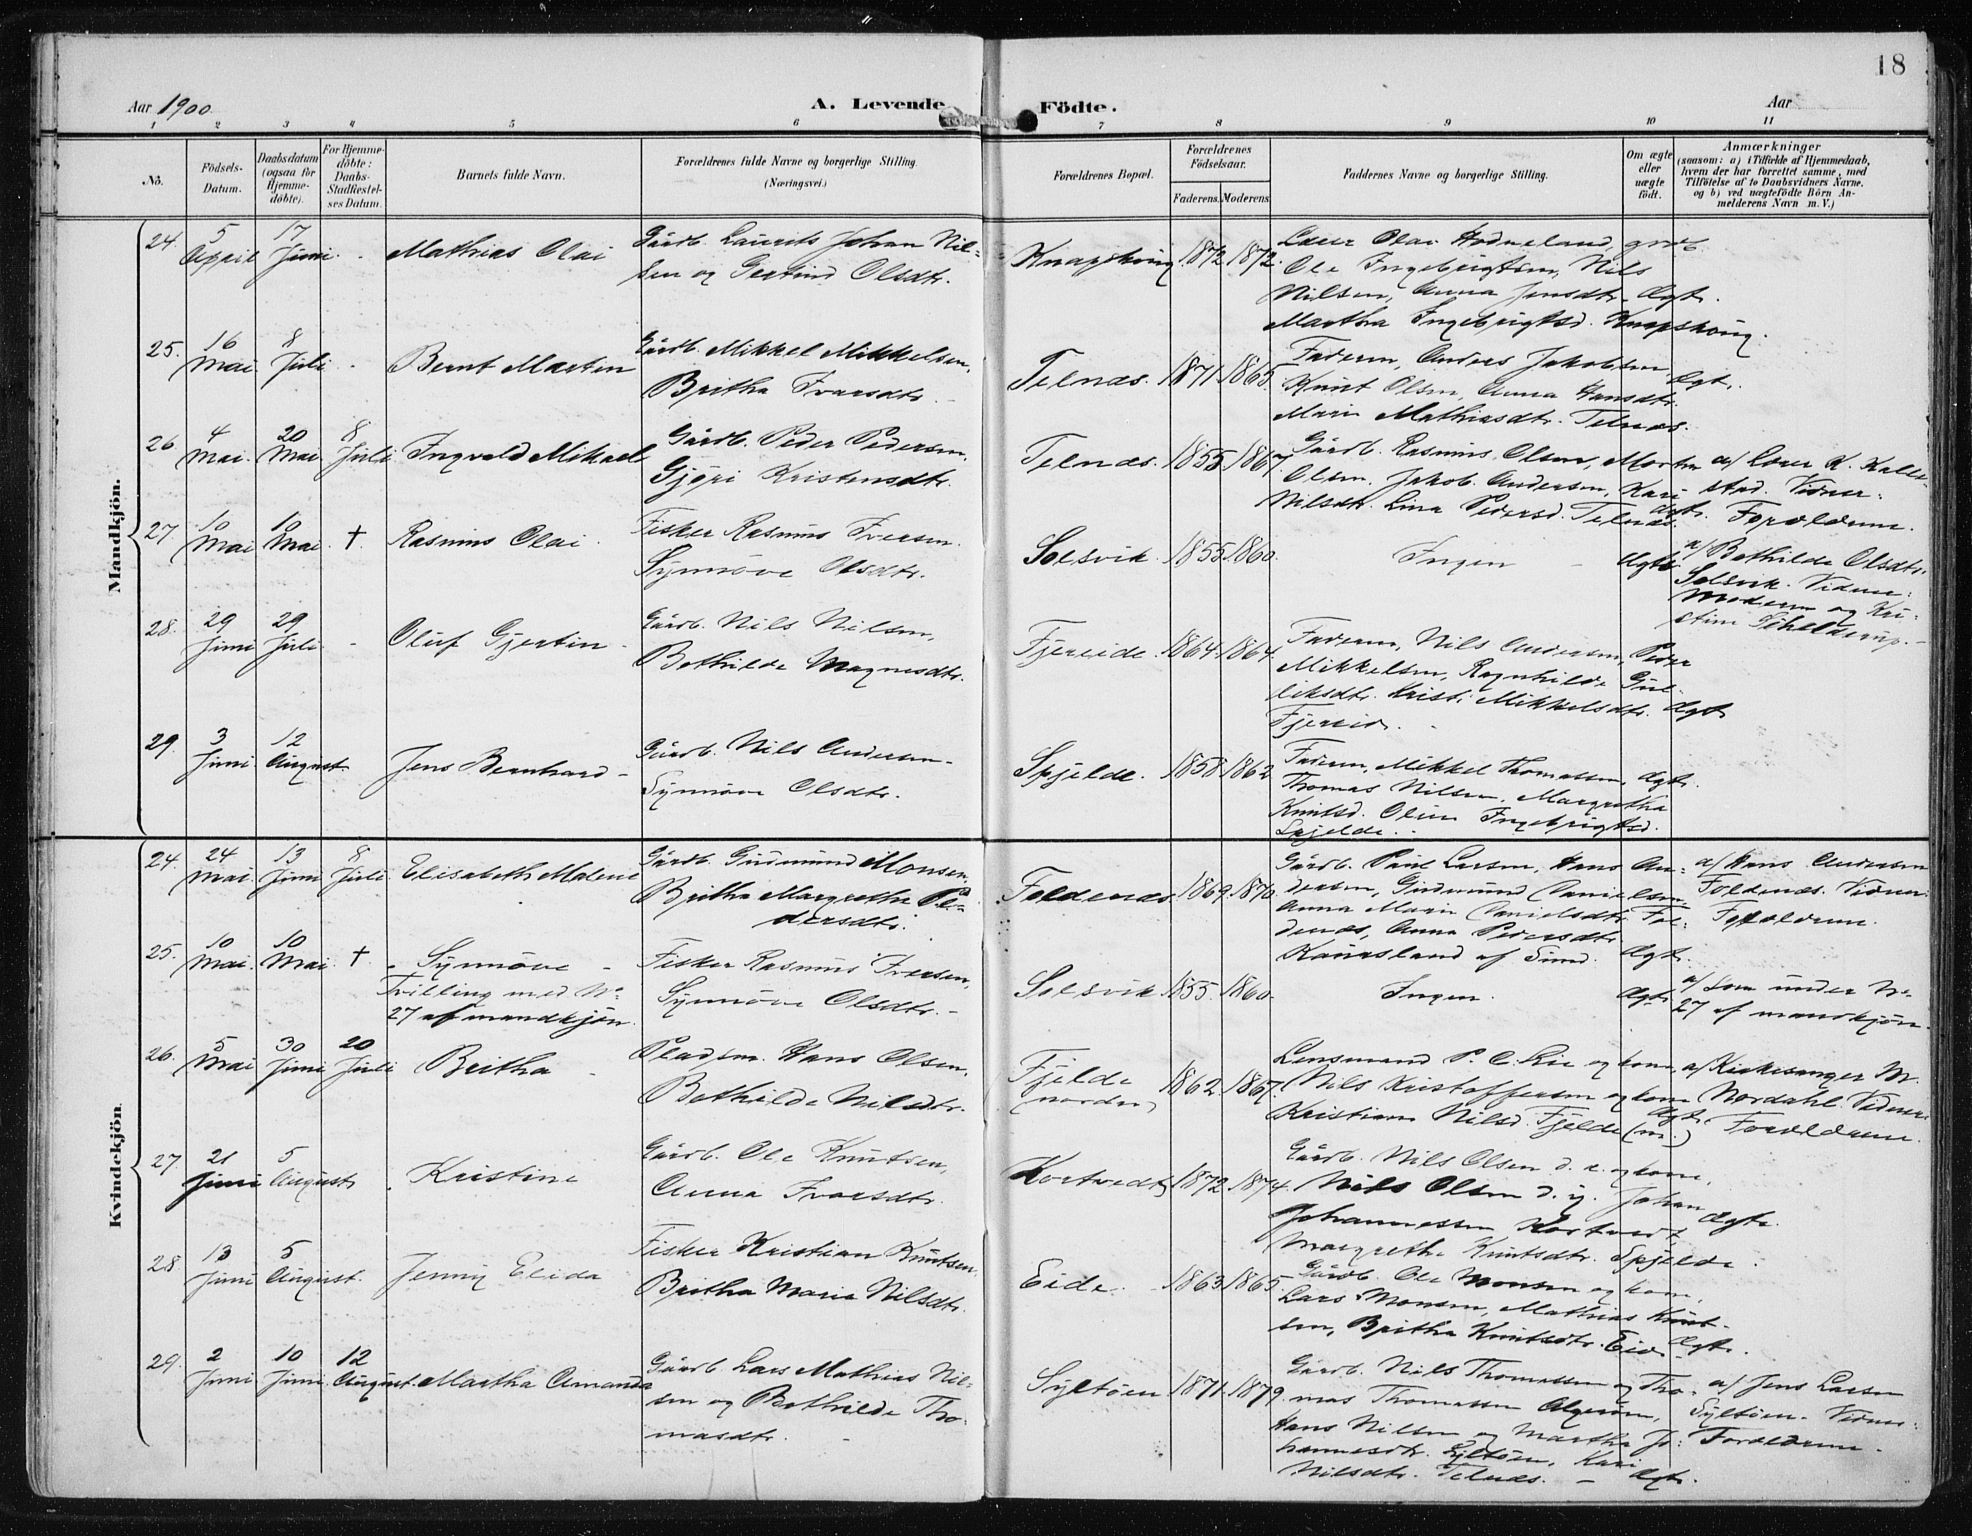 18
Aar 1900.
A. Levende Födte.
Aar
1 2 3 4 5 6 7 8 9 10 11
No.
Födsels-
Datum.
Daabsdatum
(ogsaa for
Hjemme-
döbte).
For Hjemme-
döbte:
Daabs-
Stadfæstel-
ses Datum.
Barnets fulde Navn.
Forældrenes fulde Navne og borgerlige Stilling.
(Næringsvei.)
Forældrenes Bopæl.
Forældrenes
Födselsaar.
Faderens. Moderens.
Faddernes Navne og borgerlige Stilling.
Om ægte
eller
uægte
födt.
Anmærkninger
(saasom: a) i Tilfælde af Hjemmedaab,
hvem der har forrettet samme, med
Tilföielse af to Daabsvidners Navne,
og b) ved uægtefödte Börn An-
melderens Navn m. V.)
Mandkjön.
24. 5 April 17 Juni - Mathias Olai
Gårdb. Laurits Johan Nil-
sen og Gertrud Olsdtr.
Knapskoug 1872. 1872.
Lærer Olai Hodneland, grdb.
Ole Ingebrigtsen, Nils
Nilsen, Anna Jensdtr. Ægte.
Martha Ingebrigtsd. Knapskoug.
25. 16 Mai 8 Juli - Bernt Martin
Gårdb. Mikkel Mikkelsen,
Britha Ivarsdtr. -
Telnæs. 1871. 1865.
Faderen, Anders Jakobsen,
Knut Olsen, Anna Hansdtr. Ægte.
Mari Mathiasdtr. Telnæs.
26. 4 Mai. 20 Mai 8 Juli. Ingvald Mikael
Gårdb. Peder Pedersen,
Gjøri Kristensdtr.
Telnæs. 1855. 1867.
Gårdb. Rasmus Olsen, Morten
Olsen, Jakob Andersen, Kari
Nilsdtr. Lina Pedersd. Telnæs. Ægte.
a/ Lærer K. Kalle-
stad. Vidner:
Forældrene.
27. 10 Mai 10 Mai. † Rasmus Olai.
Fisker Rasmus Iversen.
Synnöve Olsdtr.
Solsvik. 1855. 1860.
Ingen - Ægte.
a/ Bothilde Olsdtr.
Solsvik. Vidner:
Moderen og Kri-
stine Schelderup. -
28. 29 Juni 29 Juli. - Oluf Gjertin -
Gårdb. Nils Nilsen,
Bothilde Magnesdtr.
Fjereide. 1864. 1864.
Faderen, Nils Andersen, Peder
Mikkelsen, Ragnhilde Gul-
liksdtr. Kristi Mikkelsdtr. Ægte
Fjereid. -
29. 3 Juni. 12 August. Jens Bernhard -
Gårdb. Nils Andersen -
Synnöve Olsdtr.
Spjelde. 1858. 1862
Faderen, Mikkel Thomassen, Ægte.
Thomas Nilsen, Margretha
Knutsd. Olina Ingebrigtsd.
Spjelde. -
Kvindekjön.
24. 24 Mai. 13 Juni 8 Juli. Elisabeth Malene
Gårdb. Gudmund Monsen,
Britha Margrethe Pe-
dersdtr.
Foldenæs. 1869. 1870.
Gårdb. Paul Larsen, Hans An-
dersen, Gudmund Danielsen
Anna Marie Danielsdtr. Fol-
denæs, Anna Pedersdtr.
Kausland af Sund. Ægte.
a/ Hans Andersen
Foldenæs. Vidner:
Forældrene.
25. 10 Mai. 10 Mai. † Synnöve -
Tvilling med No
27 af mandkjön.
Fisker Rasmus Iversen,
Synnöve Olsdtr. -
Solsvik 1855. 1860.
Ingen. Ægte.
a/ Som under No
27 af mandkjön.
26. 5 Mai 30 Juni 20 Juli Britha -
Pladsm. Hans Olsen,
Bothilde Nilsdtr.
Fjelde
(nordre) 1862. 1867.
Lensmand P. C. Lie og kone,
Nils Kristoffersen og kone
Kristiane Nilsd. Fjelde (n.) Ægte
a/ Kirkesanger M.
Nordahl. Vidner:
Forældrene.
27. 21 Juni 5 August. Kristine
Gårdb. Ole Knutsen,
Anna Ivarsdtr.
Kortvedt 1872. 1874.
Gårdb. Nils Olsen d. e. og kone,
Nils Olsen d. y. Johan
Johannessen Kortvedt, Ægte.
Margretha Knutsdtr. Spjelde.
28. 13 Juni 5 August. Jenny Elida
Fisker Kristian Knutsen,
Britha Marie Nilsdtr.
Eide. 1863. 1865.
Gårdb. Ole Monsen og kone,
Lars Monsen, Mathias Knut-
sen, Britha Knutsdtr. Eide Ægte.
29. 2 Juni. 10 Juni. 12 August. Martha Amanda
Gårdb. Lars Mathias Nil-
sen og Bothilde Tho-
masdtr. -
Syltöen 1871. 1879.
Gårdb. Nils Thomassen og Tho-
mas Thomassen Algeröen,
Hans Nilsen og Martha Jo-
hannesdtr. Syltöen, Kari
Nilsdtr. Telnæs. - Ægte.
a/ Jens Larsen
Syltöen. Vidner:
Forældrene.